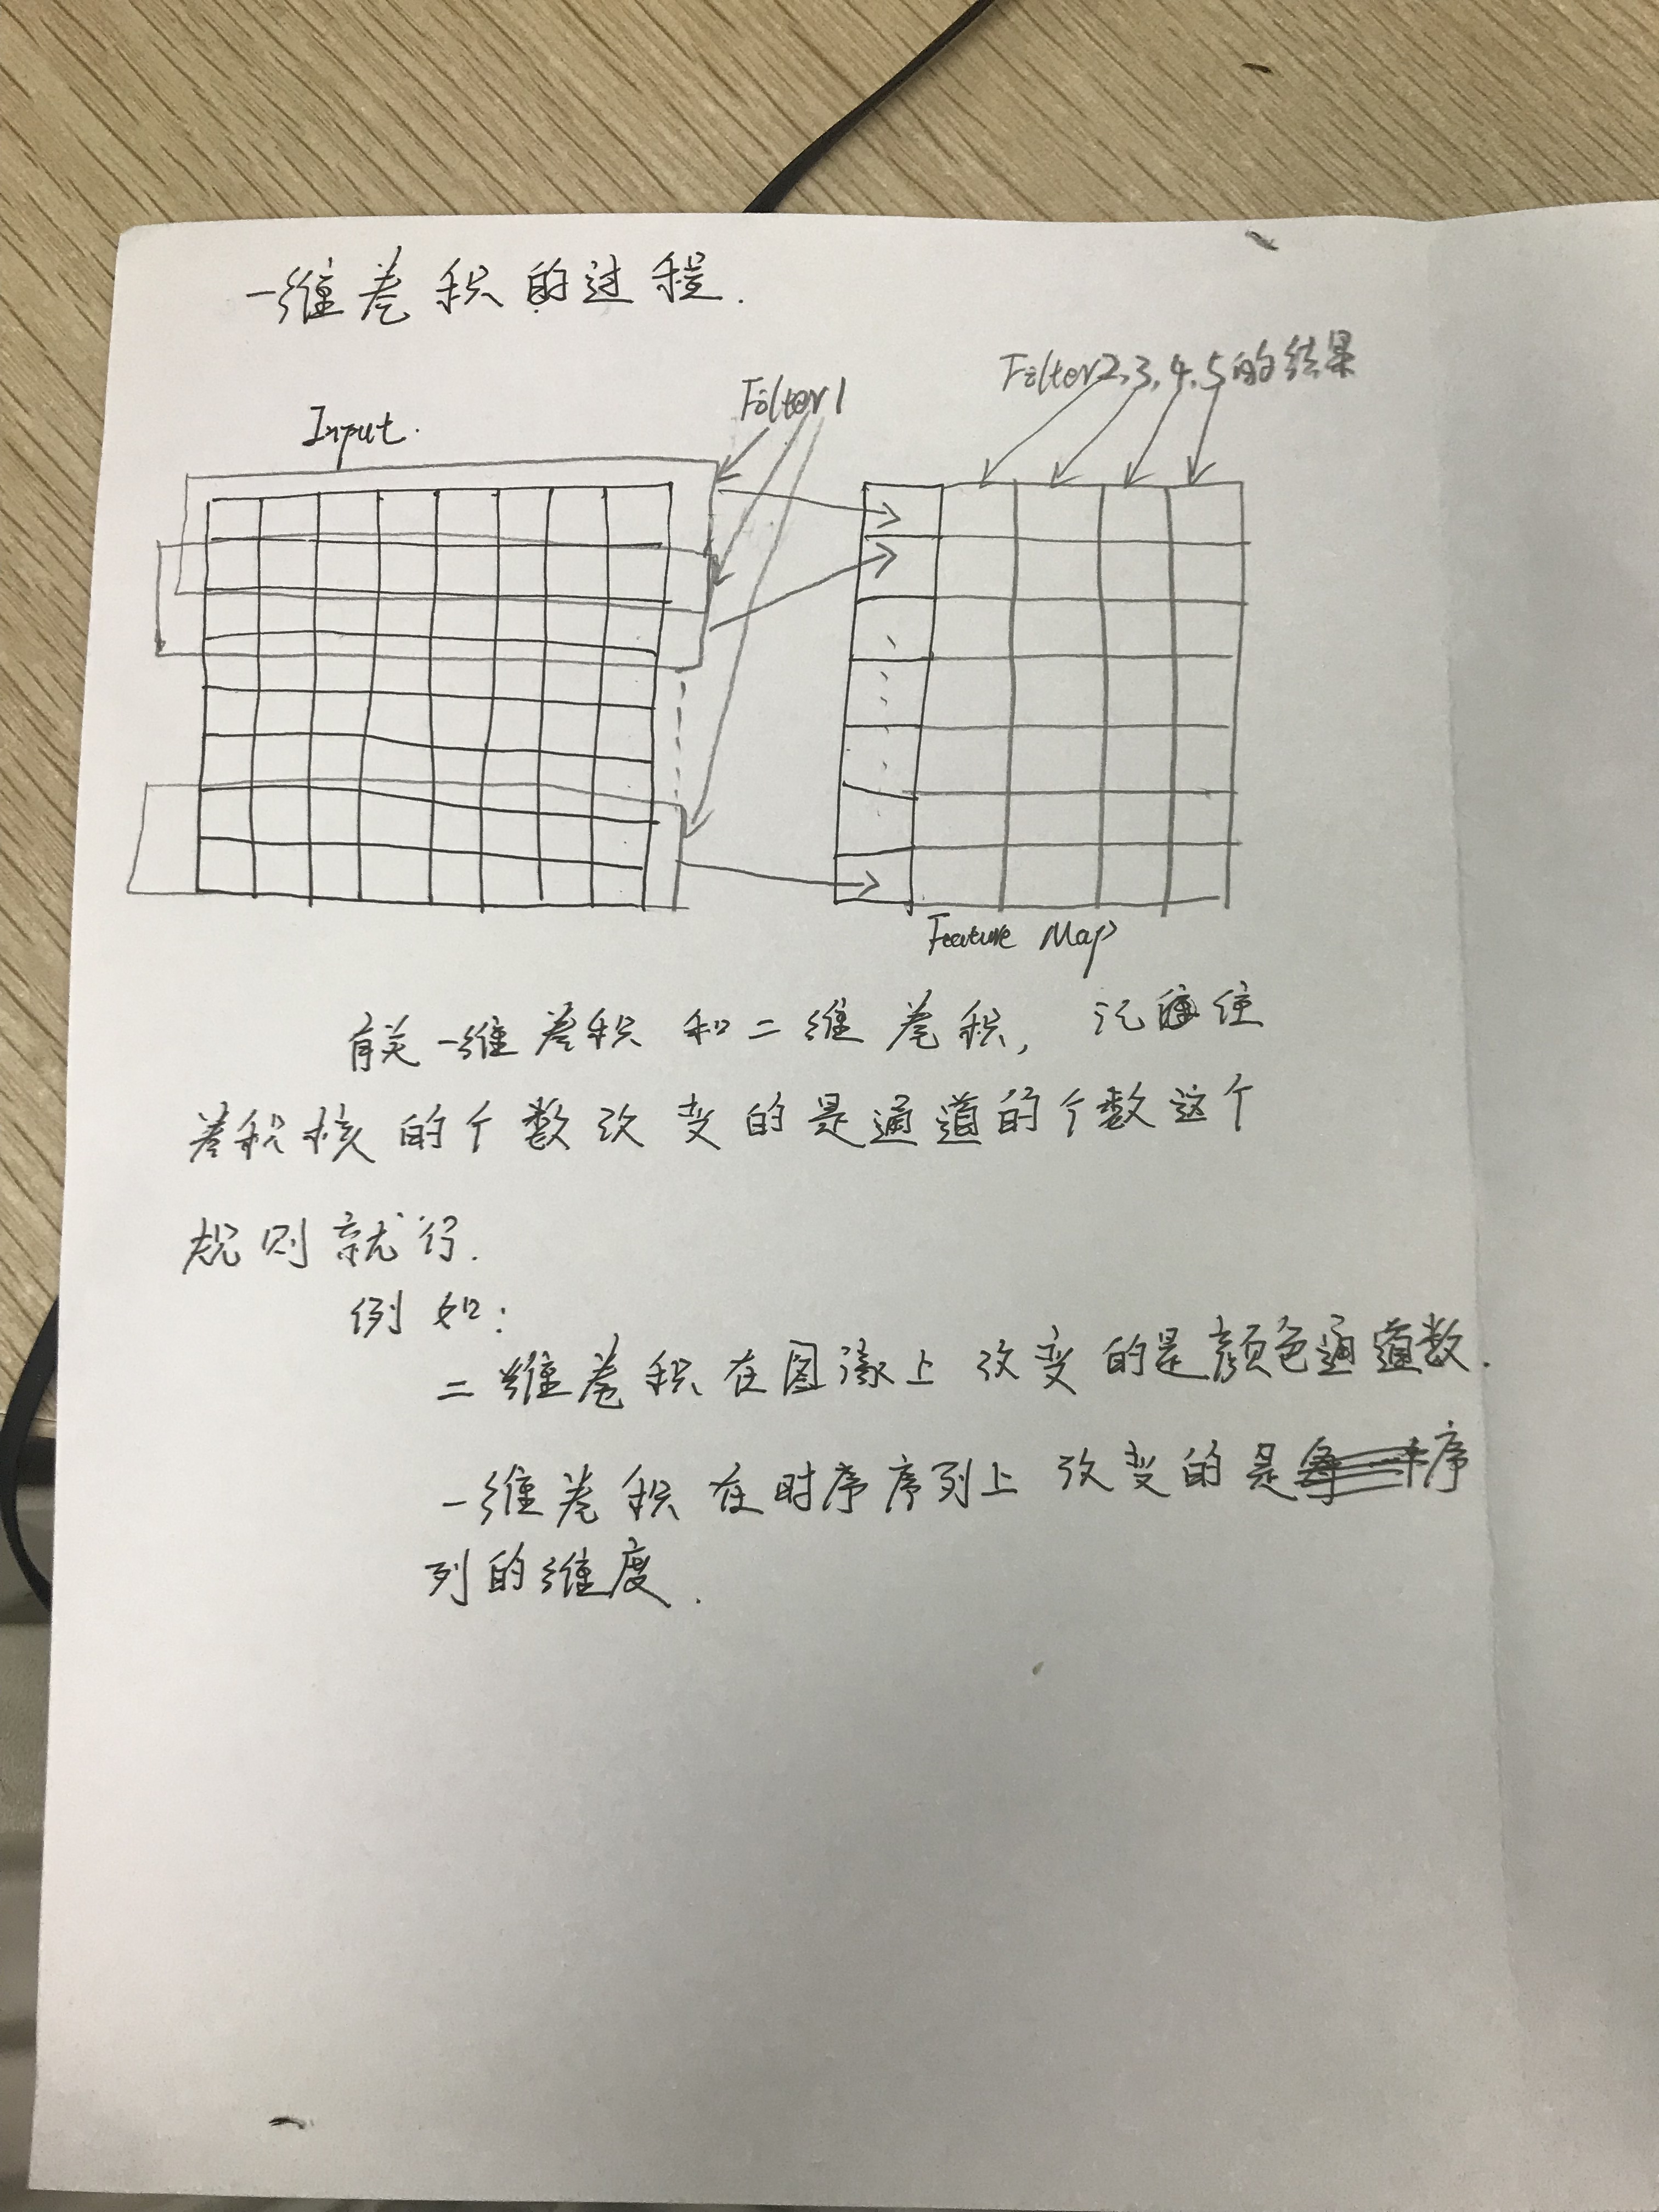 一维卷积的过程.
Filter2,3,4,5的结果
Filter1
Input.
Feature Map
有关一维卷积和二维卷积, 记住
卷积核的个数改变的是通道的个数这个
规则就行.
例如:
二维卷积在图像上改变的是颜色通道数.
一维卷积在时序序列上改变的是序
列的维度.